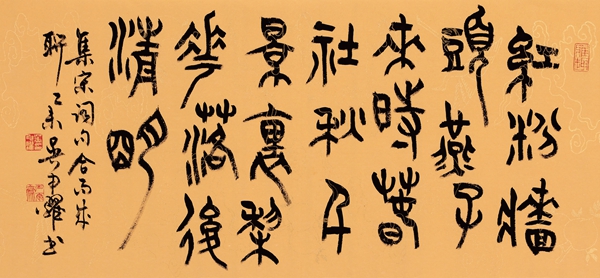 紅粉牆
頭燕子
來時春
社秋千
景裏梨
華落後
清明
集宋詞句合而成
聯乙未吳中書